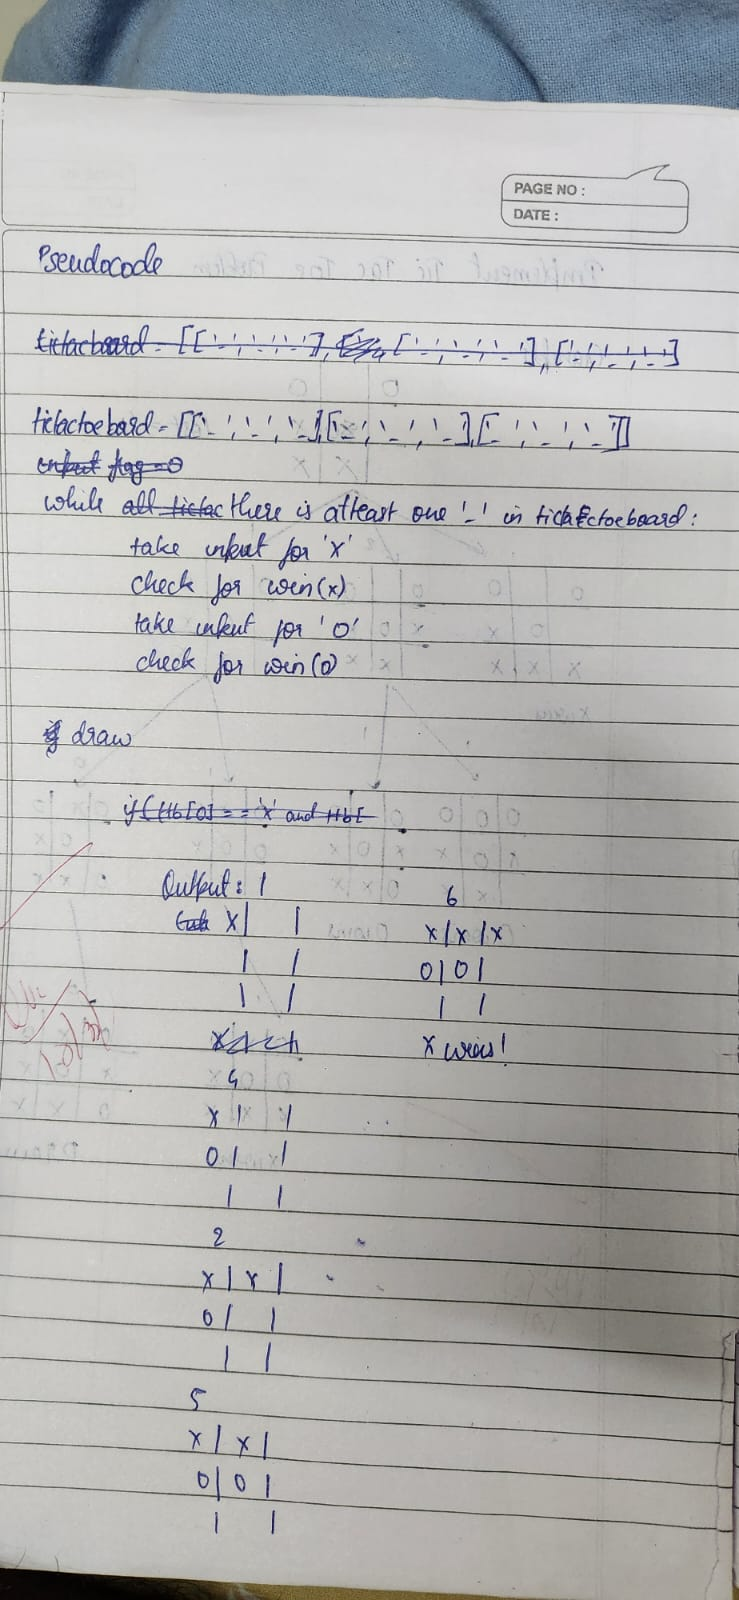 PAGE NO :
DATE :
Pseudocode
tictacboard = [['_','_','_'], ['_','_','_'], ['_','_','_']
tictactoeboard = [['_','_','_'],['_','_','_'],['_','_','_']]
input flag=0
while all tictac there is atleast one '_' in tictactoeboard:
take input for 'x'
check for win(x)
take input for 'O'
check for win(O)
if draw
if (ttb[0] == 'x' and ttb[
Output: 1
x| |
| |
| |
4
x| |
O| |
| |
2
x|x|
O| |
| |
5
x|x|
O|O|
| |
6
x|x|x
O|O|
| |
x wins!